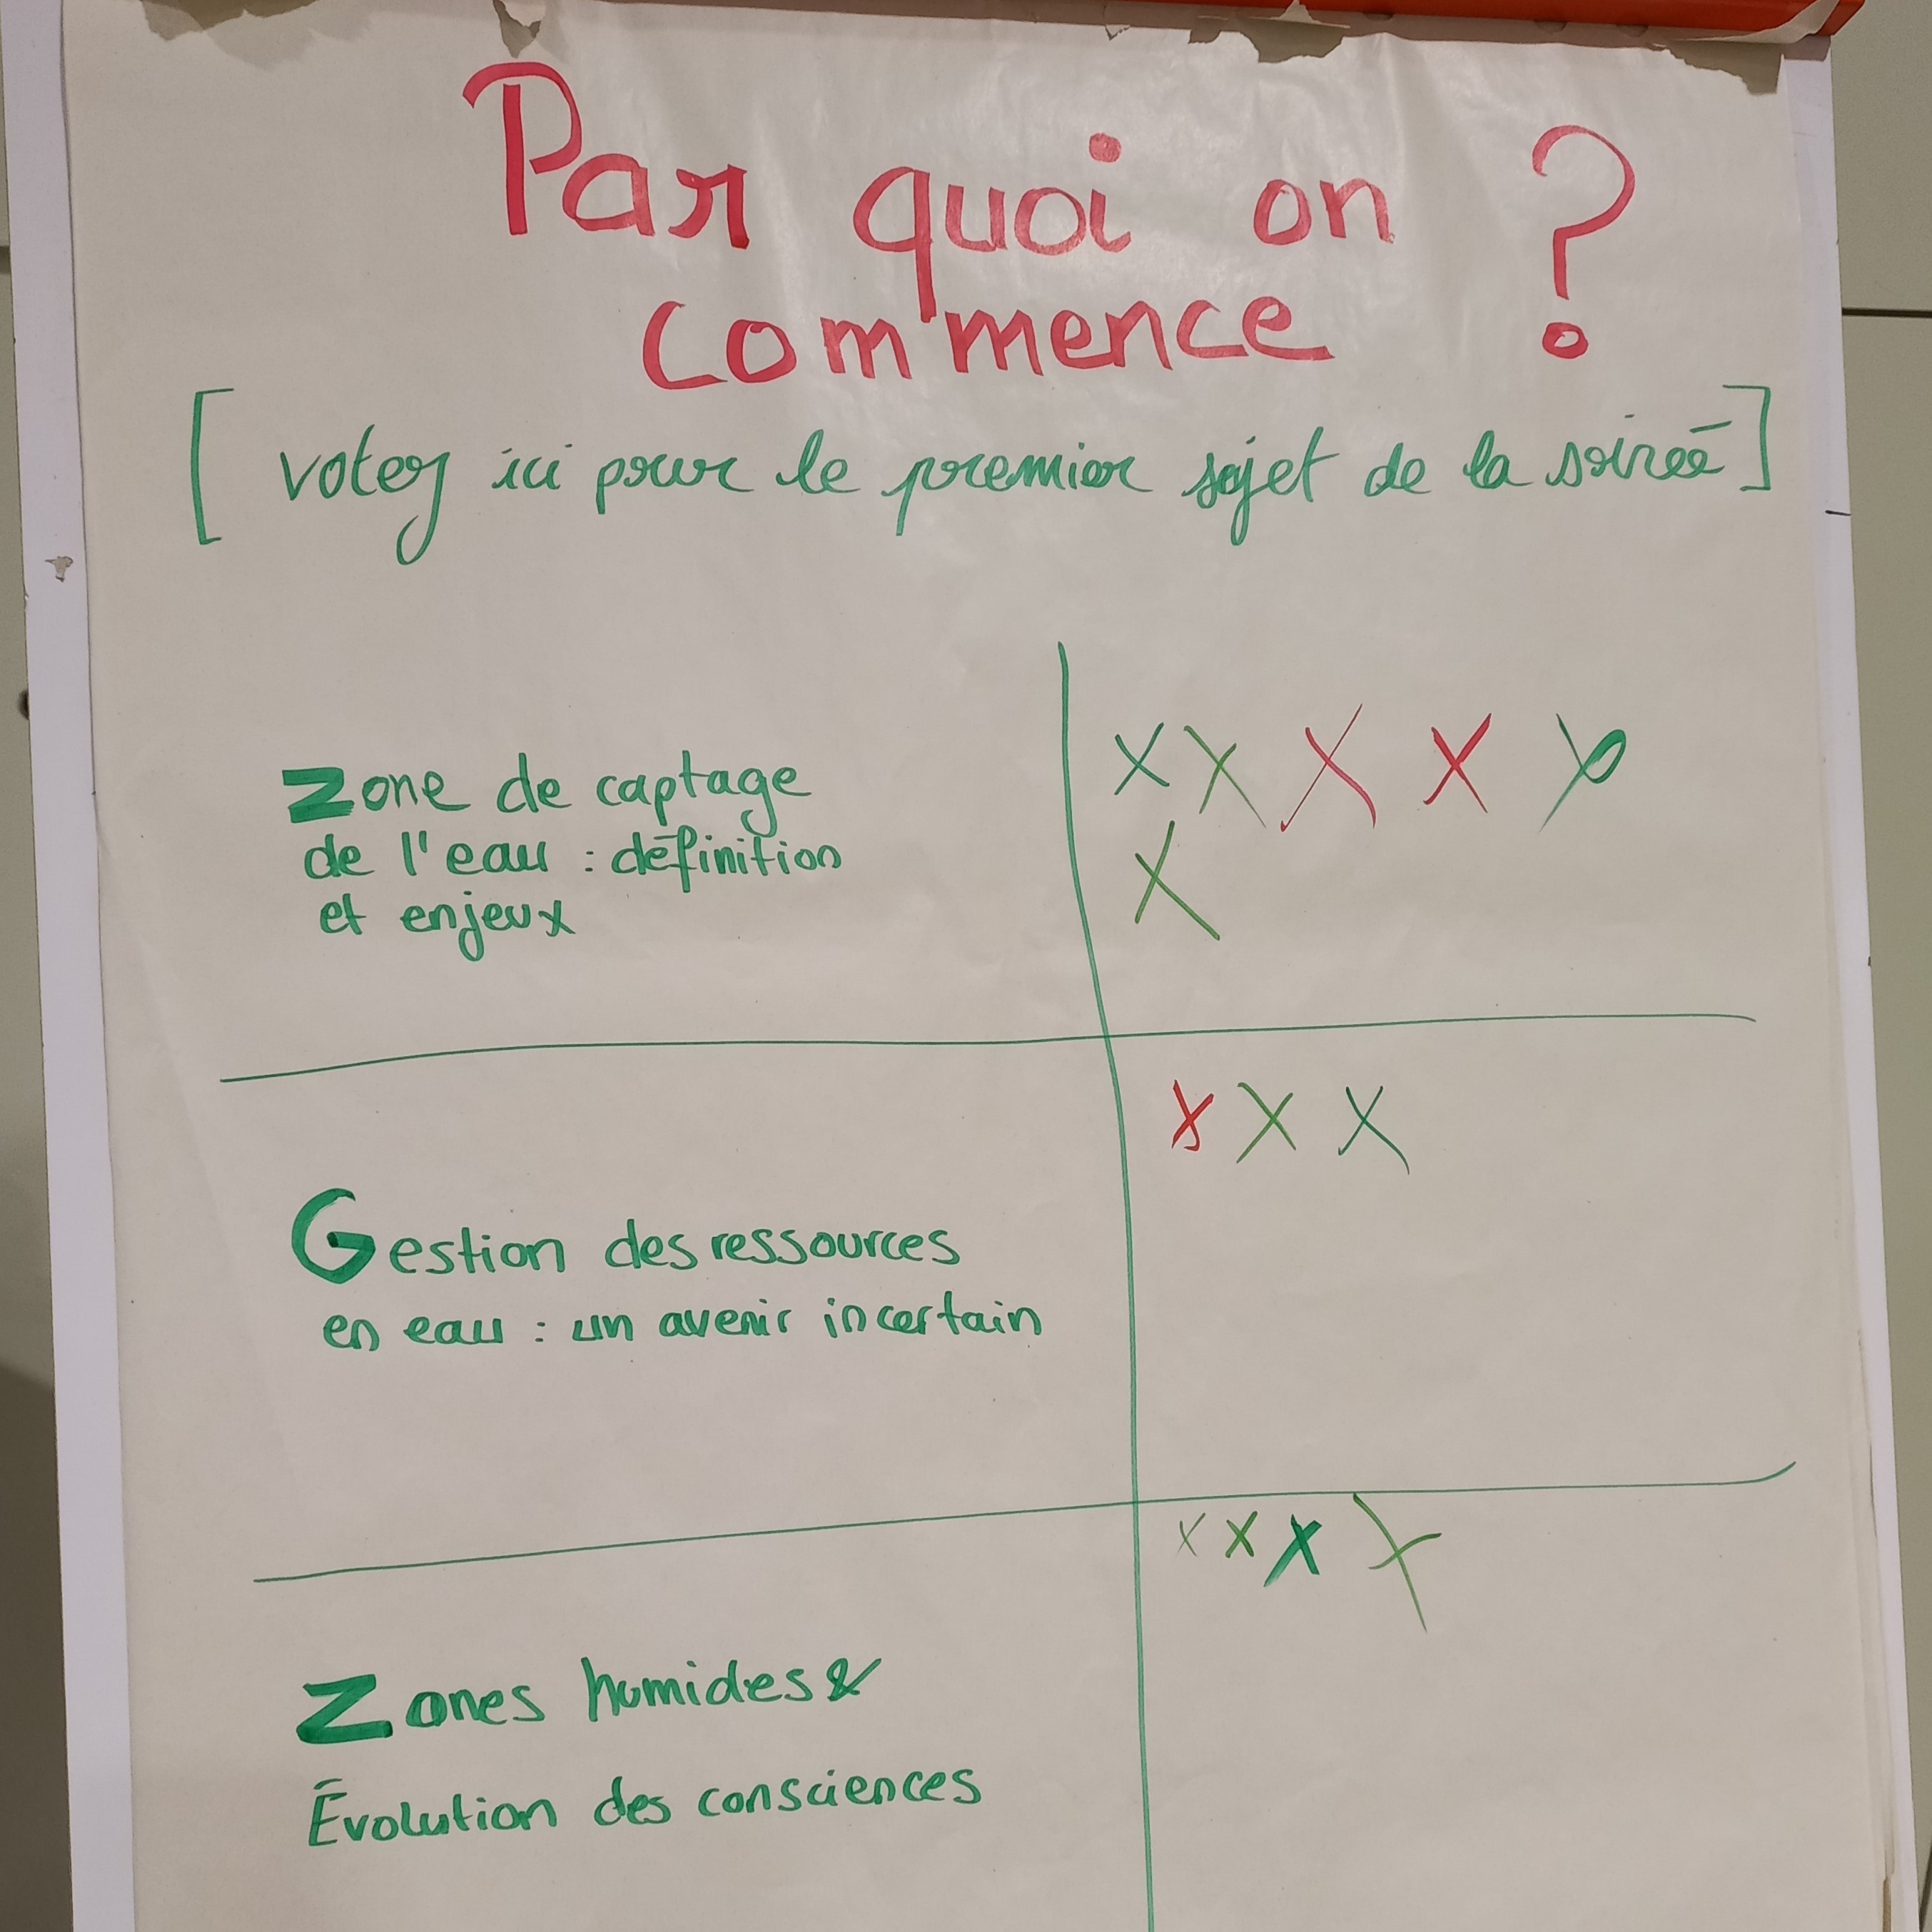 Par quoi on ?
commence
[votez ici pour le premier sujet de la soirée]
Zone de captage
X X X X X
de l'eau : définition
X
et enjeux
X X X
Gestion des ressources
en eau : un avenir incertain
X X X X
Zones humides &
Évolution des consciences